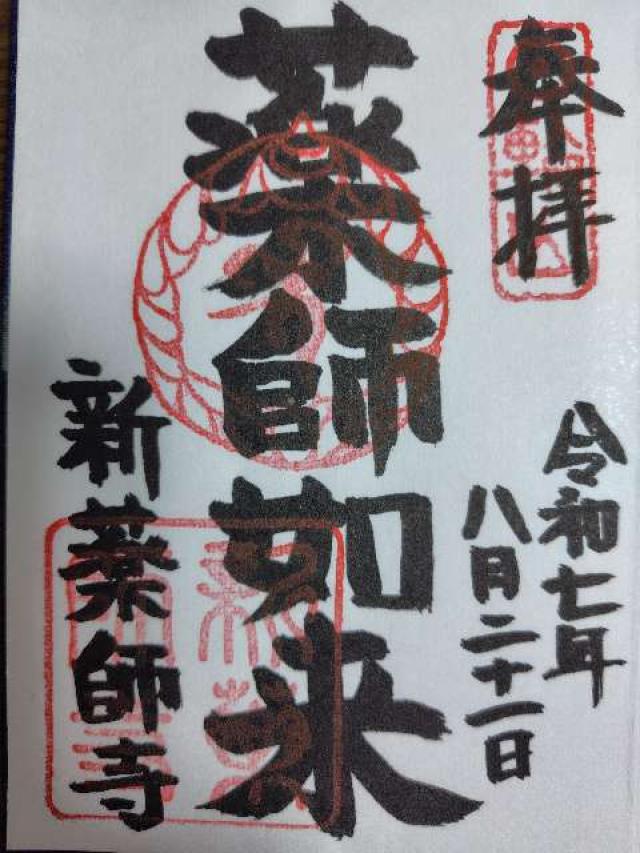 奉拝
令和七年
八月二十一日
薬師如来
新薬師寺